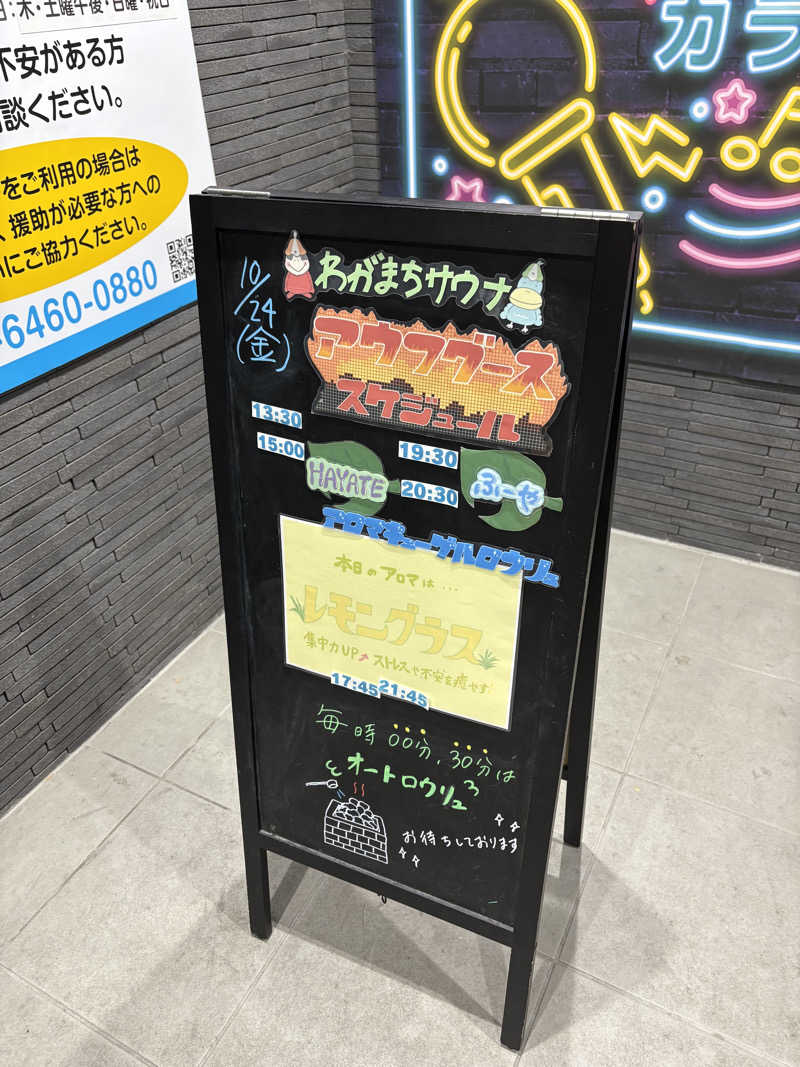 日：木・土曜午後・日曜・祝日
不安がある方
談ください。
をご利用の場合は
、援助が必要な方への
にご協力ください。
6460-0880
カラ
10/24
(金)
わがまちサウナ
アウフグース
スケジュール
13:30
15:00
HAYATE
19:30
20:30
ふーや
アロマキューゲルロウリュ
本日のアロマは...
レモングラス
集中力UP↗ストレスや不安を癒やす
17:45 21:45
毎時00分、30分は
オートロウリュ
お待ちしております